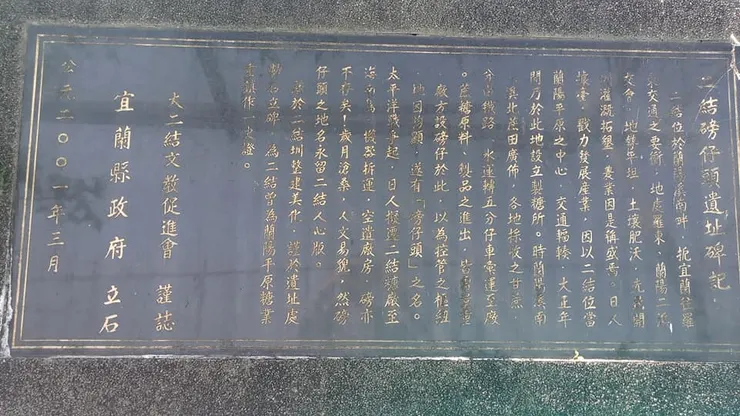 二結磅仔頭遺址碑記
二結位於蘭陽溪南畔，扼宜蘭羅
東交通之要衝，地處羅東、蘭陽二溪
交會，地勢平坦，土壤肥沃，先民開
圳灌溉拓墾，農業因是稱盛焉。日人
據臺，戮力發展產業，因以二結位當
蘭陽平原之中心，交通輻輳，大正年
間乃於此地設立製糖所。時蘭陽溪南
溪北蔗田廣佈，各地採收之甘蔗，
分由鐵路、水運轉五分仔車彙運至廠
。蔗糖原料、製品之進出，皆
廠方設磅仔於此，以為控管之樞紐
地因物顯，遂有「磅仔頭」之名。
太平洋戰爭起，日人擬置二結糖廠至
海南島，機器拆運，空遺廠房，磅亦
不存矣！歲月滄桑，人文易貌，然磅
仔頭之地名永留二結人心版。
於二結圳整建美化，謹於遺址處
勒石立碑，為二結曾為蘭陽平原糖業
作一見證。
大二結文教促進會 謹誌
宜蘭縣政府 立石
公元二00一年三月